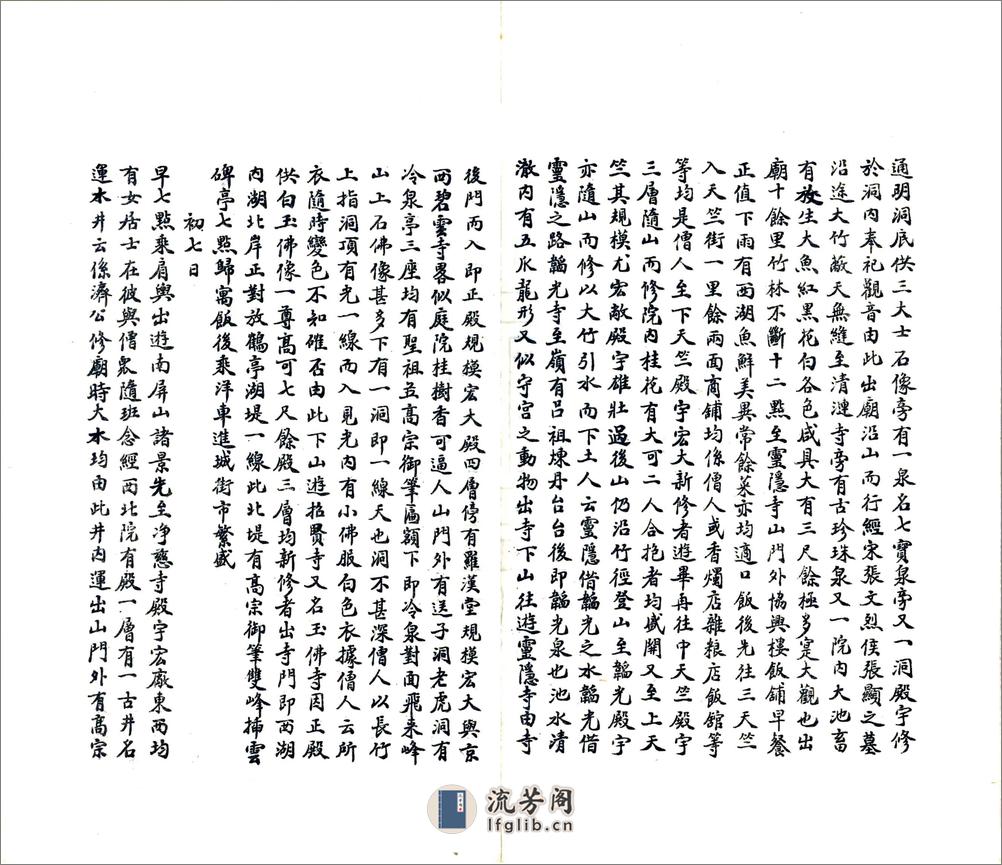 通明洞底供三大士石像旁有一泉名七寶泉旁又一洞殿宇修
於洞內奉祀觀音由此出廟沿山而行經宋張文烈侯張顯之墓
沿途大竹蔽天無縫至清漣寺旁有古珍珠泉又一院內大池畜
有放生大魚紅黑花白各色咸具大有三尺餘極多寔大觀也出
廟十餘里竹林不斷十二點至靈隱寺山門外協興樓飯鋪早餐
正值下雨有西湖魚鮮美異常餘菜亦均適口飯後先往三天竺
入天竺街一里餘兩面商鋪均係僧人或香燭店雜粮店飯舘等
等均是僧人至下天竺殿宇宏大新修者遊畢再往中天竺殿宇
三層隨山而修院內桂花有大可二人合抱者均盛開又至上天
竺其規模尤宏敞殿宇雄壯過後山仍沿竹徑登山至韜光殿宇
亦隨山而修以大竹引水而下土人云靈隱借韜光之水韜光借
靈隱之路韜光寺至嶺有呂祖煉丹台台後即韜光泉也池水清
澈內有五爪龍形又似守宮之動物出寺下山往遊靈隱寺由寺
後門而入即正殿規模宏大殿四層傍有羅漢堂規模宏大與京
西碧雲寺畧似庭院桂樹香可逼人山門外有送子洞老虎洞有
冷泉亭三座均有聖祖並高宗御筆匾額下即冷泉對面飛來峰
山上石佛像甚多下有一洞即一線天也洞不甚深僧人以長竹
上指洞頂有光一線而入見光內有小佛服白色衣據僧人云所
衣隨時變色不知確否由此下山遊招賢寺又名玉佛寺因正殿
供白玉佛像一尊高可七尺餘殿三層均新修者出寺門即西湖
內湖北岸正對放鶴亭湖堤一線此北堤有高宗御筆雙峰插雲
碑亭七點歸寓飯後乘洋車進城街市繁盛
初七日
早七點乘肩輿出遊南屏山諸景先至净慈寺殿宇宏厰東西均
有女居士在彼與僧眾隨班念經西北院有殿一層有一古井名
運木井云係濟公修廟時大木均由此井內運出山門外有高宗
流芳阁
lfglib.cn